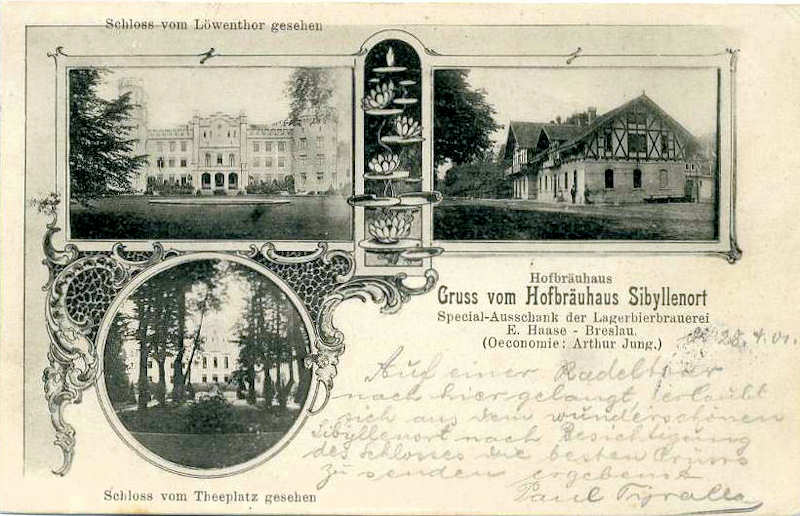 Schloss vom Löwenthor gesehen
Hofbräuhaus
Gruss vom Hofbräuhaus Sibyllenort
Special-Ausschank der Lagerbierbrauerei
E. Haase - Breslau.
(Oeconomie: Arthur Jung.)
28. 4. 01.
Auf einer
nach hier gelangt, erlaubt
sich aus dem wunderschönen
Sibyllenort nach Besichtigung
des Schlosses die besten Grüsse
zu senden ergebenst
Paul Tyralla
Schloss vom Theeplatz gesehen